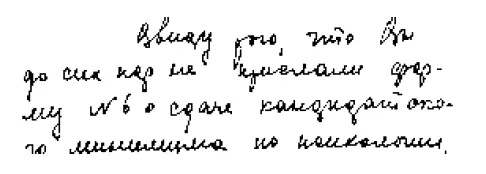 Ввиду того, что Вы
до сих пор не прислали фор-
му № 6 о сдаче кандидатско-
го минимума по психологии,